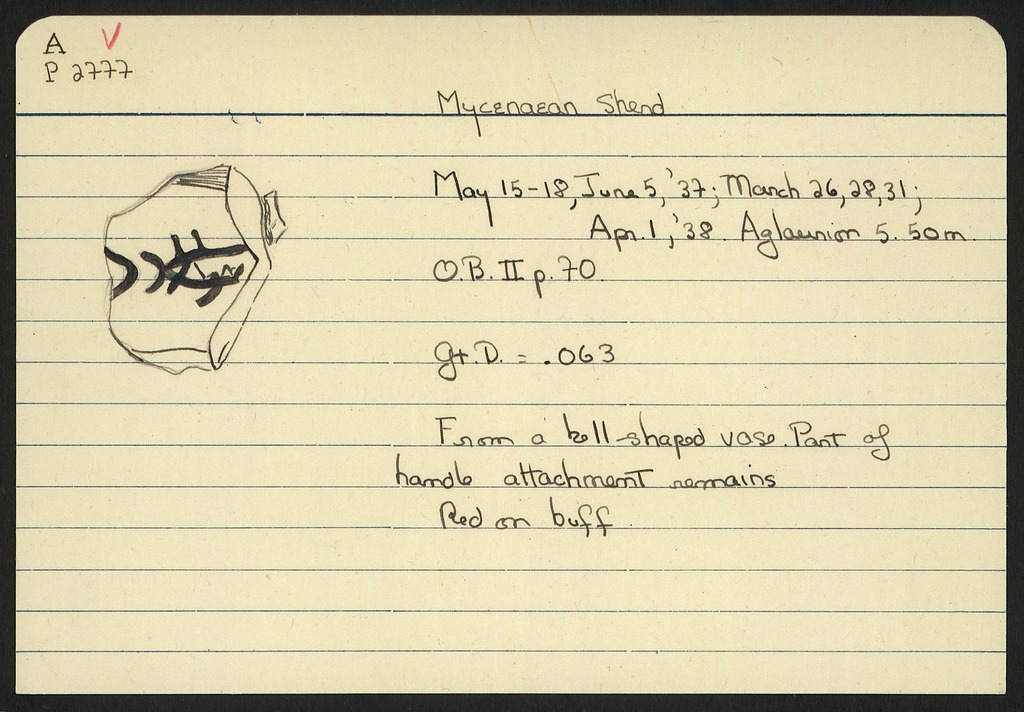 A V
P 2777
Mycenaean Sherd
May 15-18, June 5, '37; March 26, 28, 31;
Apr. 1, '38. Aglaurion 5.50m.
O.B. II p. 70.
Gt. D. = .063
From a bell-shaped vase. Part of
handle attachment remains
Red on buff.